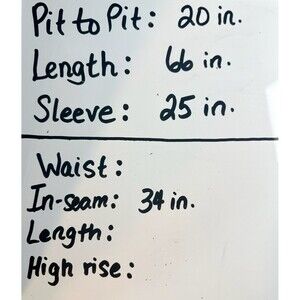 Pit to Pit: 20 in.
Length: 66 in.
Sleeve: 25 in.
Waist:
In-seam: 34 in.
Length:
High rise: